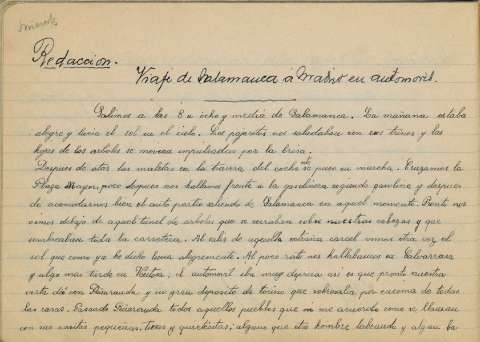 Redaccion.
Viaje de Salamanca a Madrid en automovil.
Salimos a las 8 u ocho y media de Salamanca. La mañana estaba
alegre y lucia el sol en el cielo. Los pajaritos nos saludaban con sus trinos y las
hojas de los arboles se movian impulsadas por la brisa.
Despues de atar las maletas en la trasera del coche este se puso en marcha. Cruzamos la
Plaza Mayor, poco despues nos hallamos frente a la gasolinera, cogiendo gasolina y despues
de acomodarnos bien el auto partio saliendo de Salamanca en aquel momento. Pronto nos
vimos debajo de aquel tunel de arboles que se cerraban sobre nuestras cabezas y que
sombreaban toda la carretera. Al salir de aquella extraña carcel vimos otra vez el
sol que como ya he dicho lucia alegremente. Al poco rato nos hallabamos en Calvarrasa
y algo mas tarde en Ventosa, el automovil iba muy deprisa asi es que pronto nuestra
vista dió con Peñaranda y un gran deposito de tocino que rebosaba por encima de todas
las casas. Pasando Peñaranda todos aquellos pueblos que ni me acuerdo como se llaman
con sus casitas pequeñas, tiesas y quietecitas; alguna que otro hombre labrando y algun ba